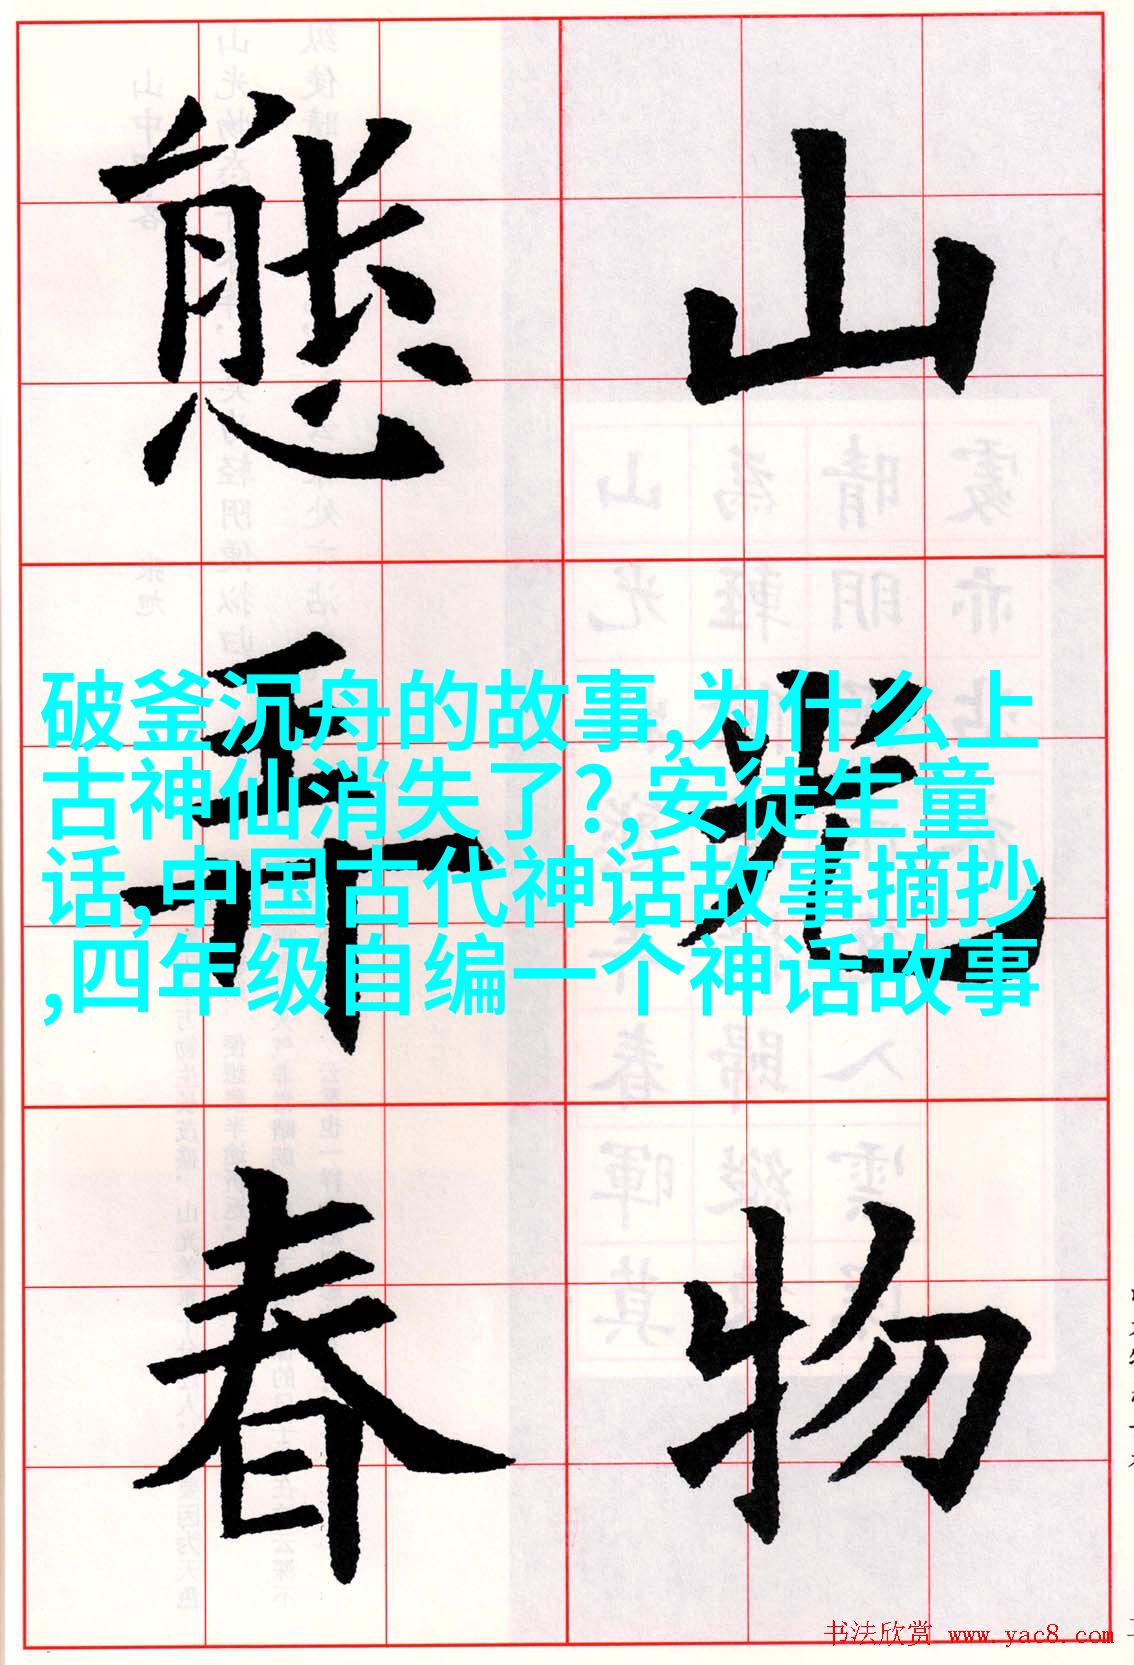 山光物
態弄春
破釜沉舟的故事,为什么上
古神仙消失了?,安徒生童
话,中国古代神话故事摘抄
,四年级自编一个神话故事
书法欣赏 www.yac8.com